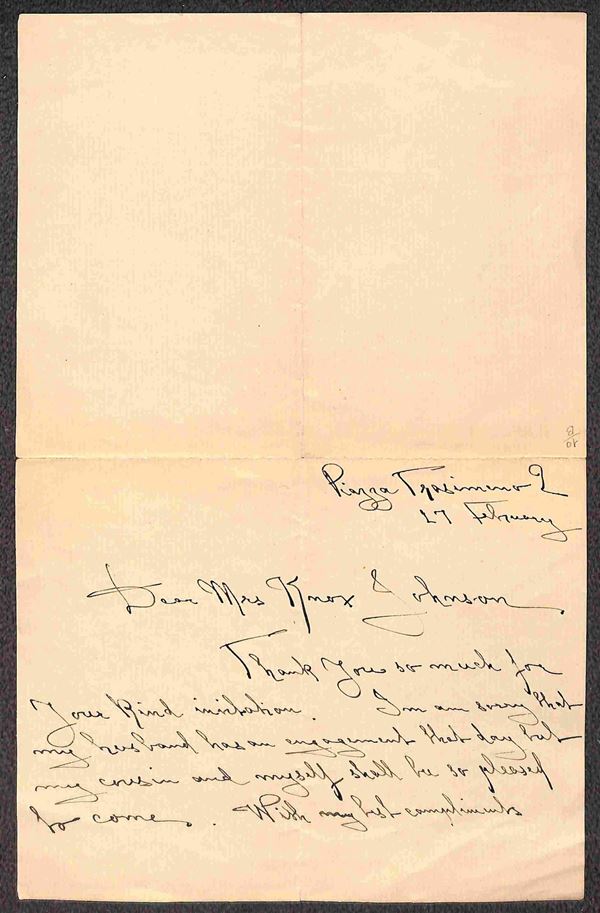 Piazza Trasimeno 2
17 February
Dear Mrs Knox Johnson
Thank you so much for
your kind invitation. I'm am sorry that
my husband has an engagement that day but
my cousin and myself shall be so pleased
to come. With my best compliments